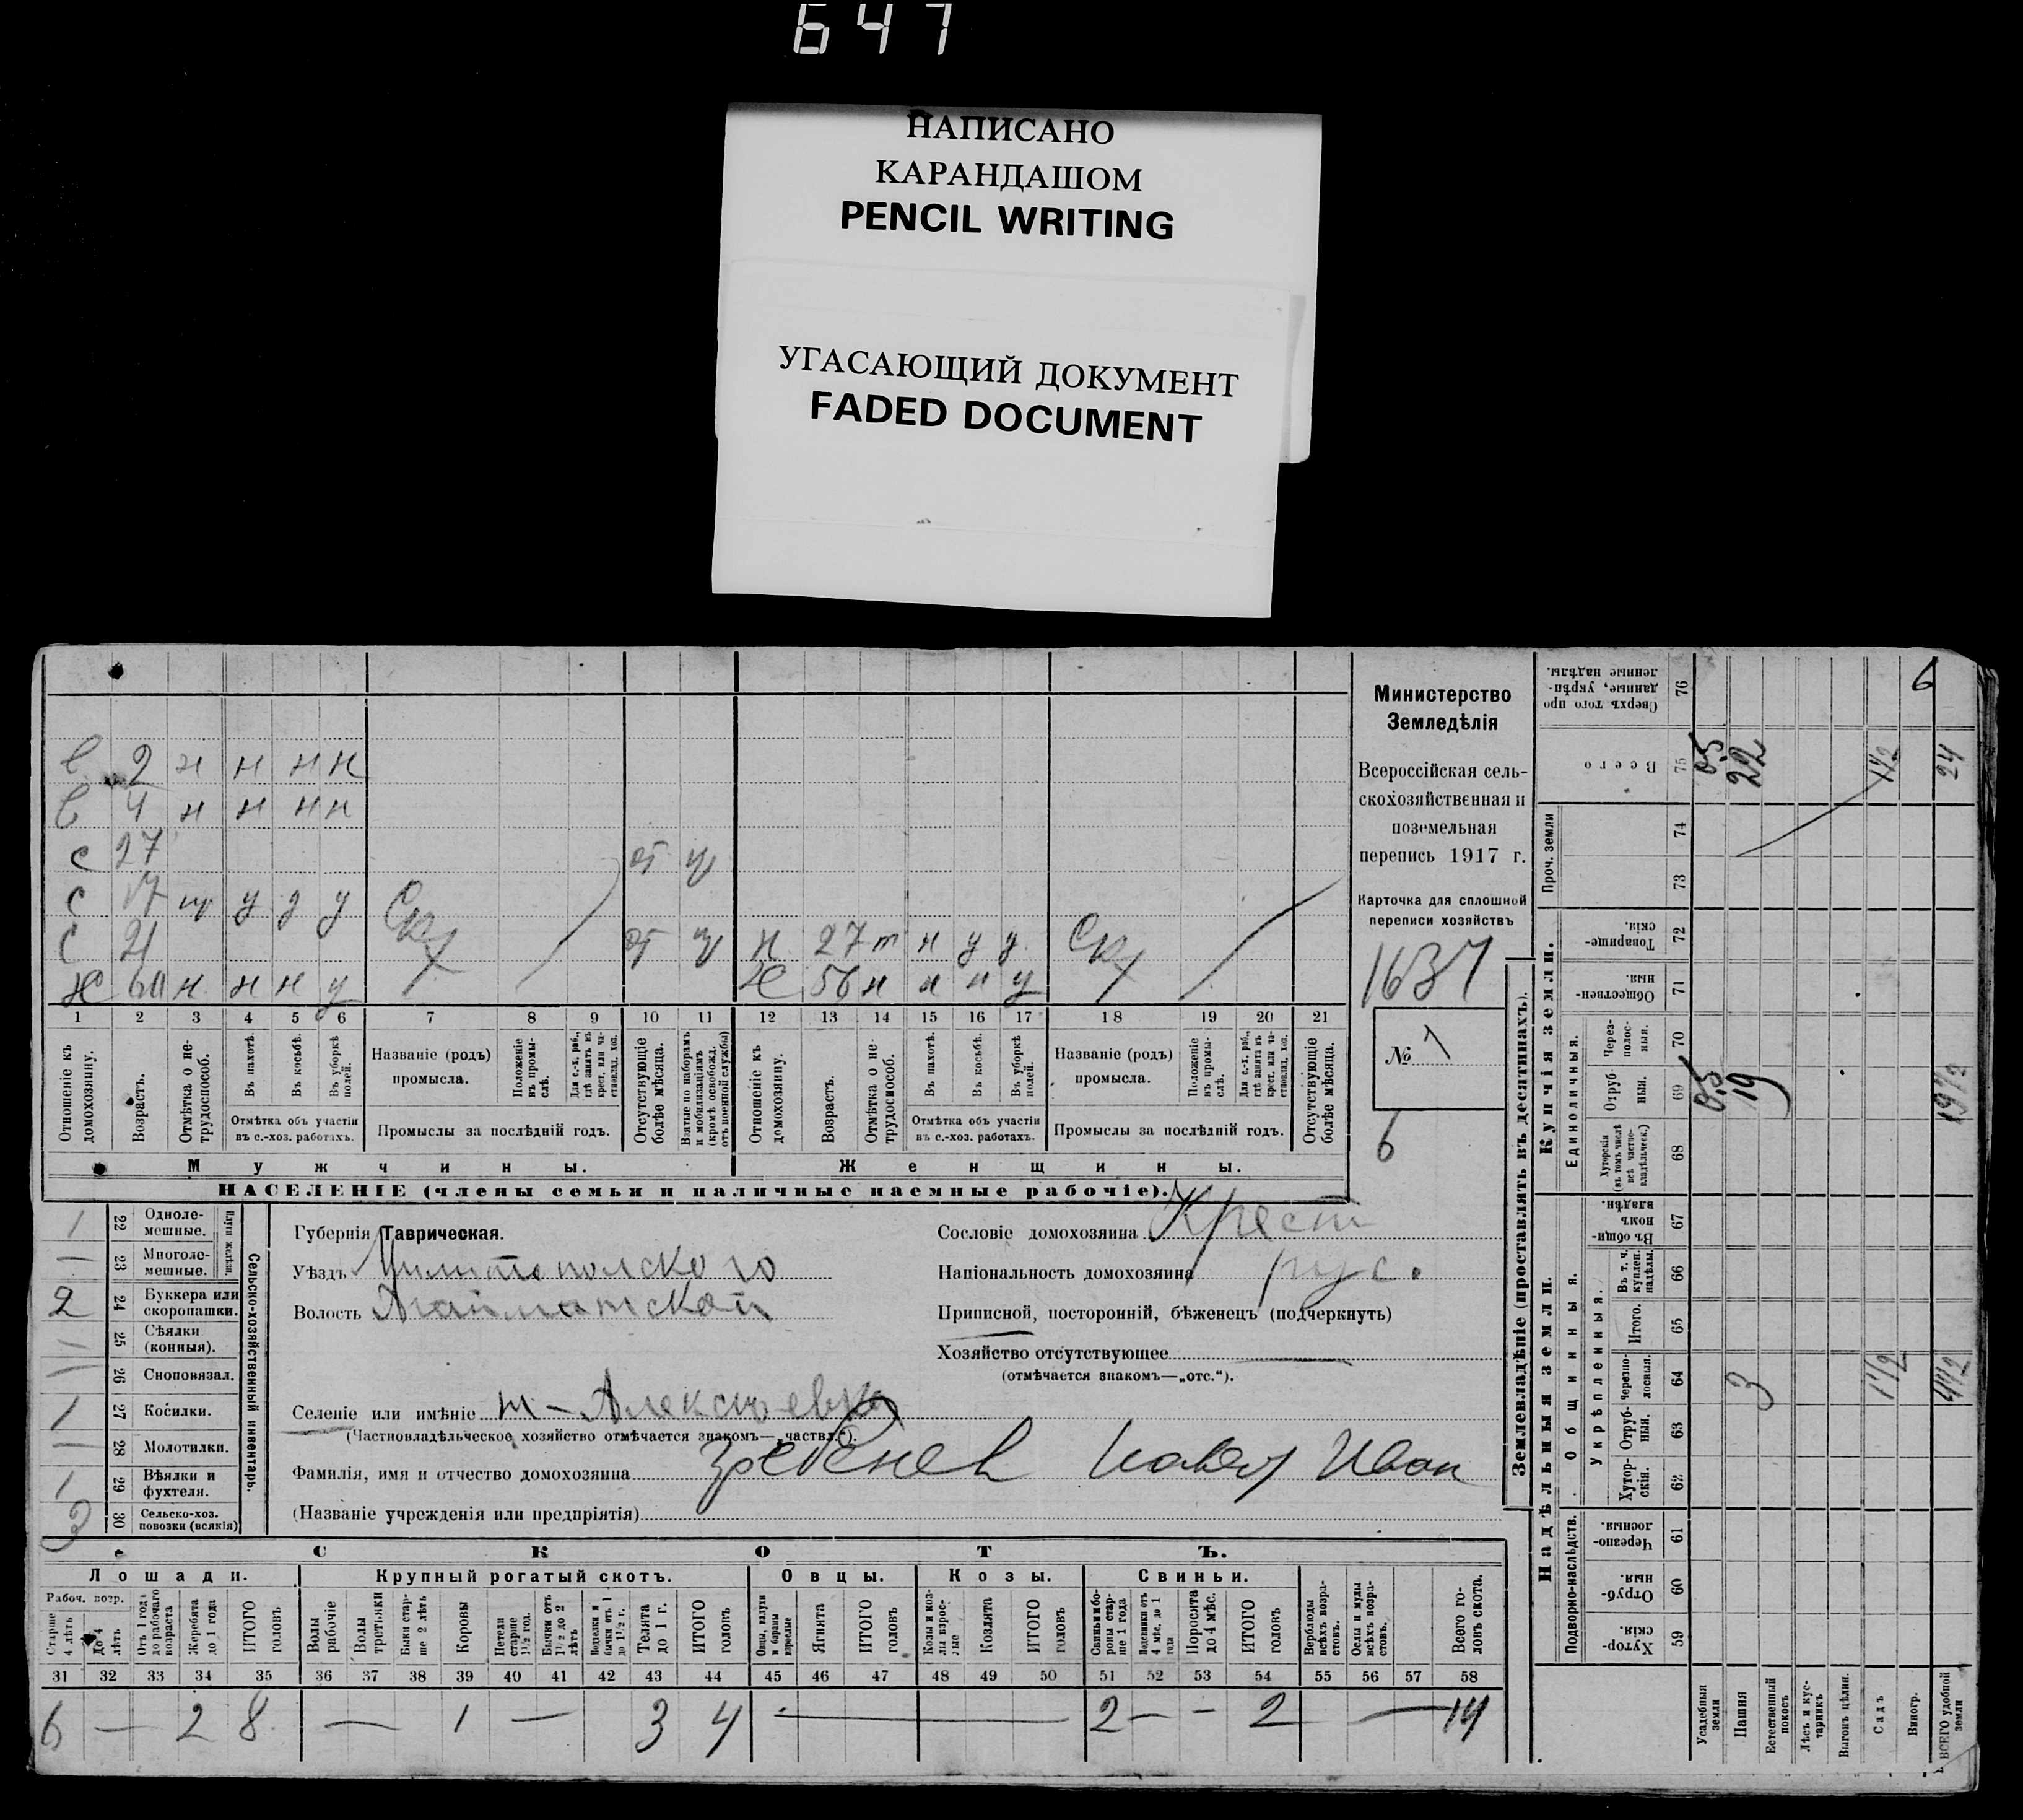 647
НАПИСАНО
КАРАНДАШОМ
PENCIL WRITING
УГАСАЮЩИЙ ДОКУМЕНТ
FADED DOCUMENT
в 2 н н н н
в 4 н н н н
с 27 от
с 17 у у
с 21 от н 27 т н у у
60 н н н у 56 н н н у
1 2 3 4 5 6 7 8 9 10 11 12 13 14 15 16 17 18 19 20 21
Отношеніе къ домохозяину.
Возрастъ.
Отмѣтка о нетрудоспособ.
Въ пахотѣ.
Въ косьбѣ.
Въ уборкѣ полей.
Отмѣтка объ участіи въ с.-хоз. работахъ.
Названіе (родъ) промысла.
Положеніе въ промыслѣ.
Промыслы за послѣдній годъ.
Отсутствующіе болѣе мѣсяца.
Взятые по наборамъ и мобилизаціямъ (кромѣ освобожд. отъ военной службы)
Отношеніе къ домохозяину.
Возрастъ.
Отмѣтка о нетрудоспособ.
Въ пахотѣ.
Въ косьбѣ.
Въ уборкѣ полей.
Отмѣтка объ участіи въ с.-хоз. работахъ.
Названіе (родъ) промысла.
Положеніе въ промыслѣ.
Промыслы за послѣдній годъ.
Отсутствующіе болѣе мѣсяца.
Мужчины. Женщины.
НАСЕЛЕНІЕ (члены семьи и наличные наемные рабочіе).
Министерство
Земледѣлія
Всероссійская сель-
скохозяйственная и
поземельная
перепись 1917 г.
Карточка для сплошной
переписи хозяйствъ
1637
№ 1
6
1 22 Одноле-мешные.
— 23 Многоле-мешные.
2 24 Буккера или скоропашки.
— 25 Сѣялки (конныя).
— 26 Сноповязал.
1 27 Косилки.
— 28 Молотилки.
1 29 Вѣялки и фухтеля.
3 30 Сельско-хоз. повозки (всякія)
Сельско-хозяйственный инвентарь.
Губернія Таврическая.
Уѣздъ
Волость
Селеніе или имѣніе Алексѣевка
(Частновладѣльческое хозяйство отмѣчается знакомъ—„частвл.“).
Фамилія, имя и отчество домохозяина Гребенев Павел Иван
(Названіе учрежденія или предпріятія)
Сословіе домохозяина Крест
Національность домохозяина рус.
Приписной, посторонній, бѣженецъ (подчеркнуть)
Хозяйство отсутствующее
(отмѣчается знакомъ—„отс.“).
СКОТЪ.
Лошади. Крупный рогатый скотъ. Овцы. Козы. Свиньи.
Рабоч. возр.
Старше 4 лѣтъ
До 4 лѣтъ
Отъ 1 года до рабочаго возраста
Жеребята до 1 года
ИТОГО головъ
Волы рабочіе
Волы третьяки
Быки старше 2 лѣтъ
Коровы
Нетели старше 1½ год.
Бычки отъ 1½ до 2 лѣтъ
Подтелки и бычки отъ 1 до 1½ г.
Телята до 1 г.
ИТОГО головъ
Овцы, валухи и бараны взрослые
Ягнята
ИТОГО головъ
Козы и козлы взрослые
Козлята
ИТОГО головъ
Свиньи и боровы старше 1 года
Подсвинки отъ 4 мѣс. до 1 года
Поросята до 4 мѣс.
ИТОГО головъ
Верблюды всѣхъ возрастовъ.
Ослы и мулы всѣхъ возрастовъ.
Всего головъ скота.
31 32 33 34 35 36 37 38 39 40 41 42 43 44 45 46 47 48 49 50 51 52 53 54 55 56 57 58
6 — 2 8 — 1 — 3 4 — 2 — — 2 — 14
Землевладѣніе (проставлять въ десятинахъ).
Надѣльныя земли. Купчія земли.
Подворно-наслѣдств. Общинныя. Единоличныя. Проч. земли
Укрѣпленныя.
Хуторскія. 59
Отрубныя. 60
Черезполосныя. 61
Хуторскія. 62
Отрубныя. 63
Черезполосныя. 64
Итого. 65
Въ т. ч. куплен. надѣлы. 66
Въ общинномъ владѣн. 67
Хуторскія (въ томъ числѣ всѣ частновладѣльческ.) 68
Отрубныя. 69
Черезполосныя. 70
Общественныя. 71
Товарищескія. 72
73
74
Всего 75
Сверхъ того проданные, укрѣпленные надѣлы. 76
Усадебныя земли 0,5 0,5
Пашня 3 19 22
Естественный покосъ
Лѣсъ и кустарникъ
Выгонъ цѣлин.
Садъ 1½ 1½
Виногр.
ВСЕГО удобной земли 4½ 19½ 24
6